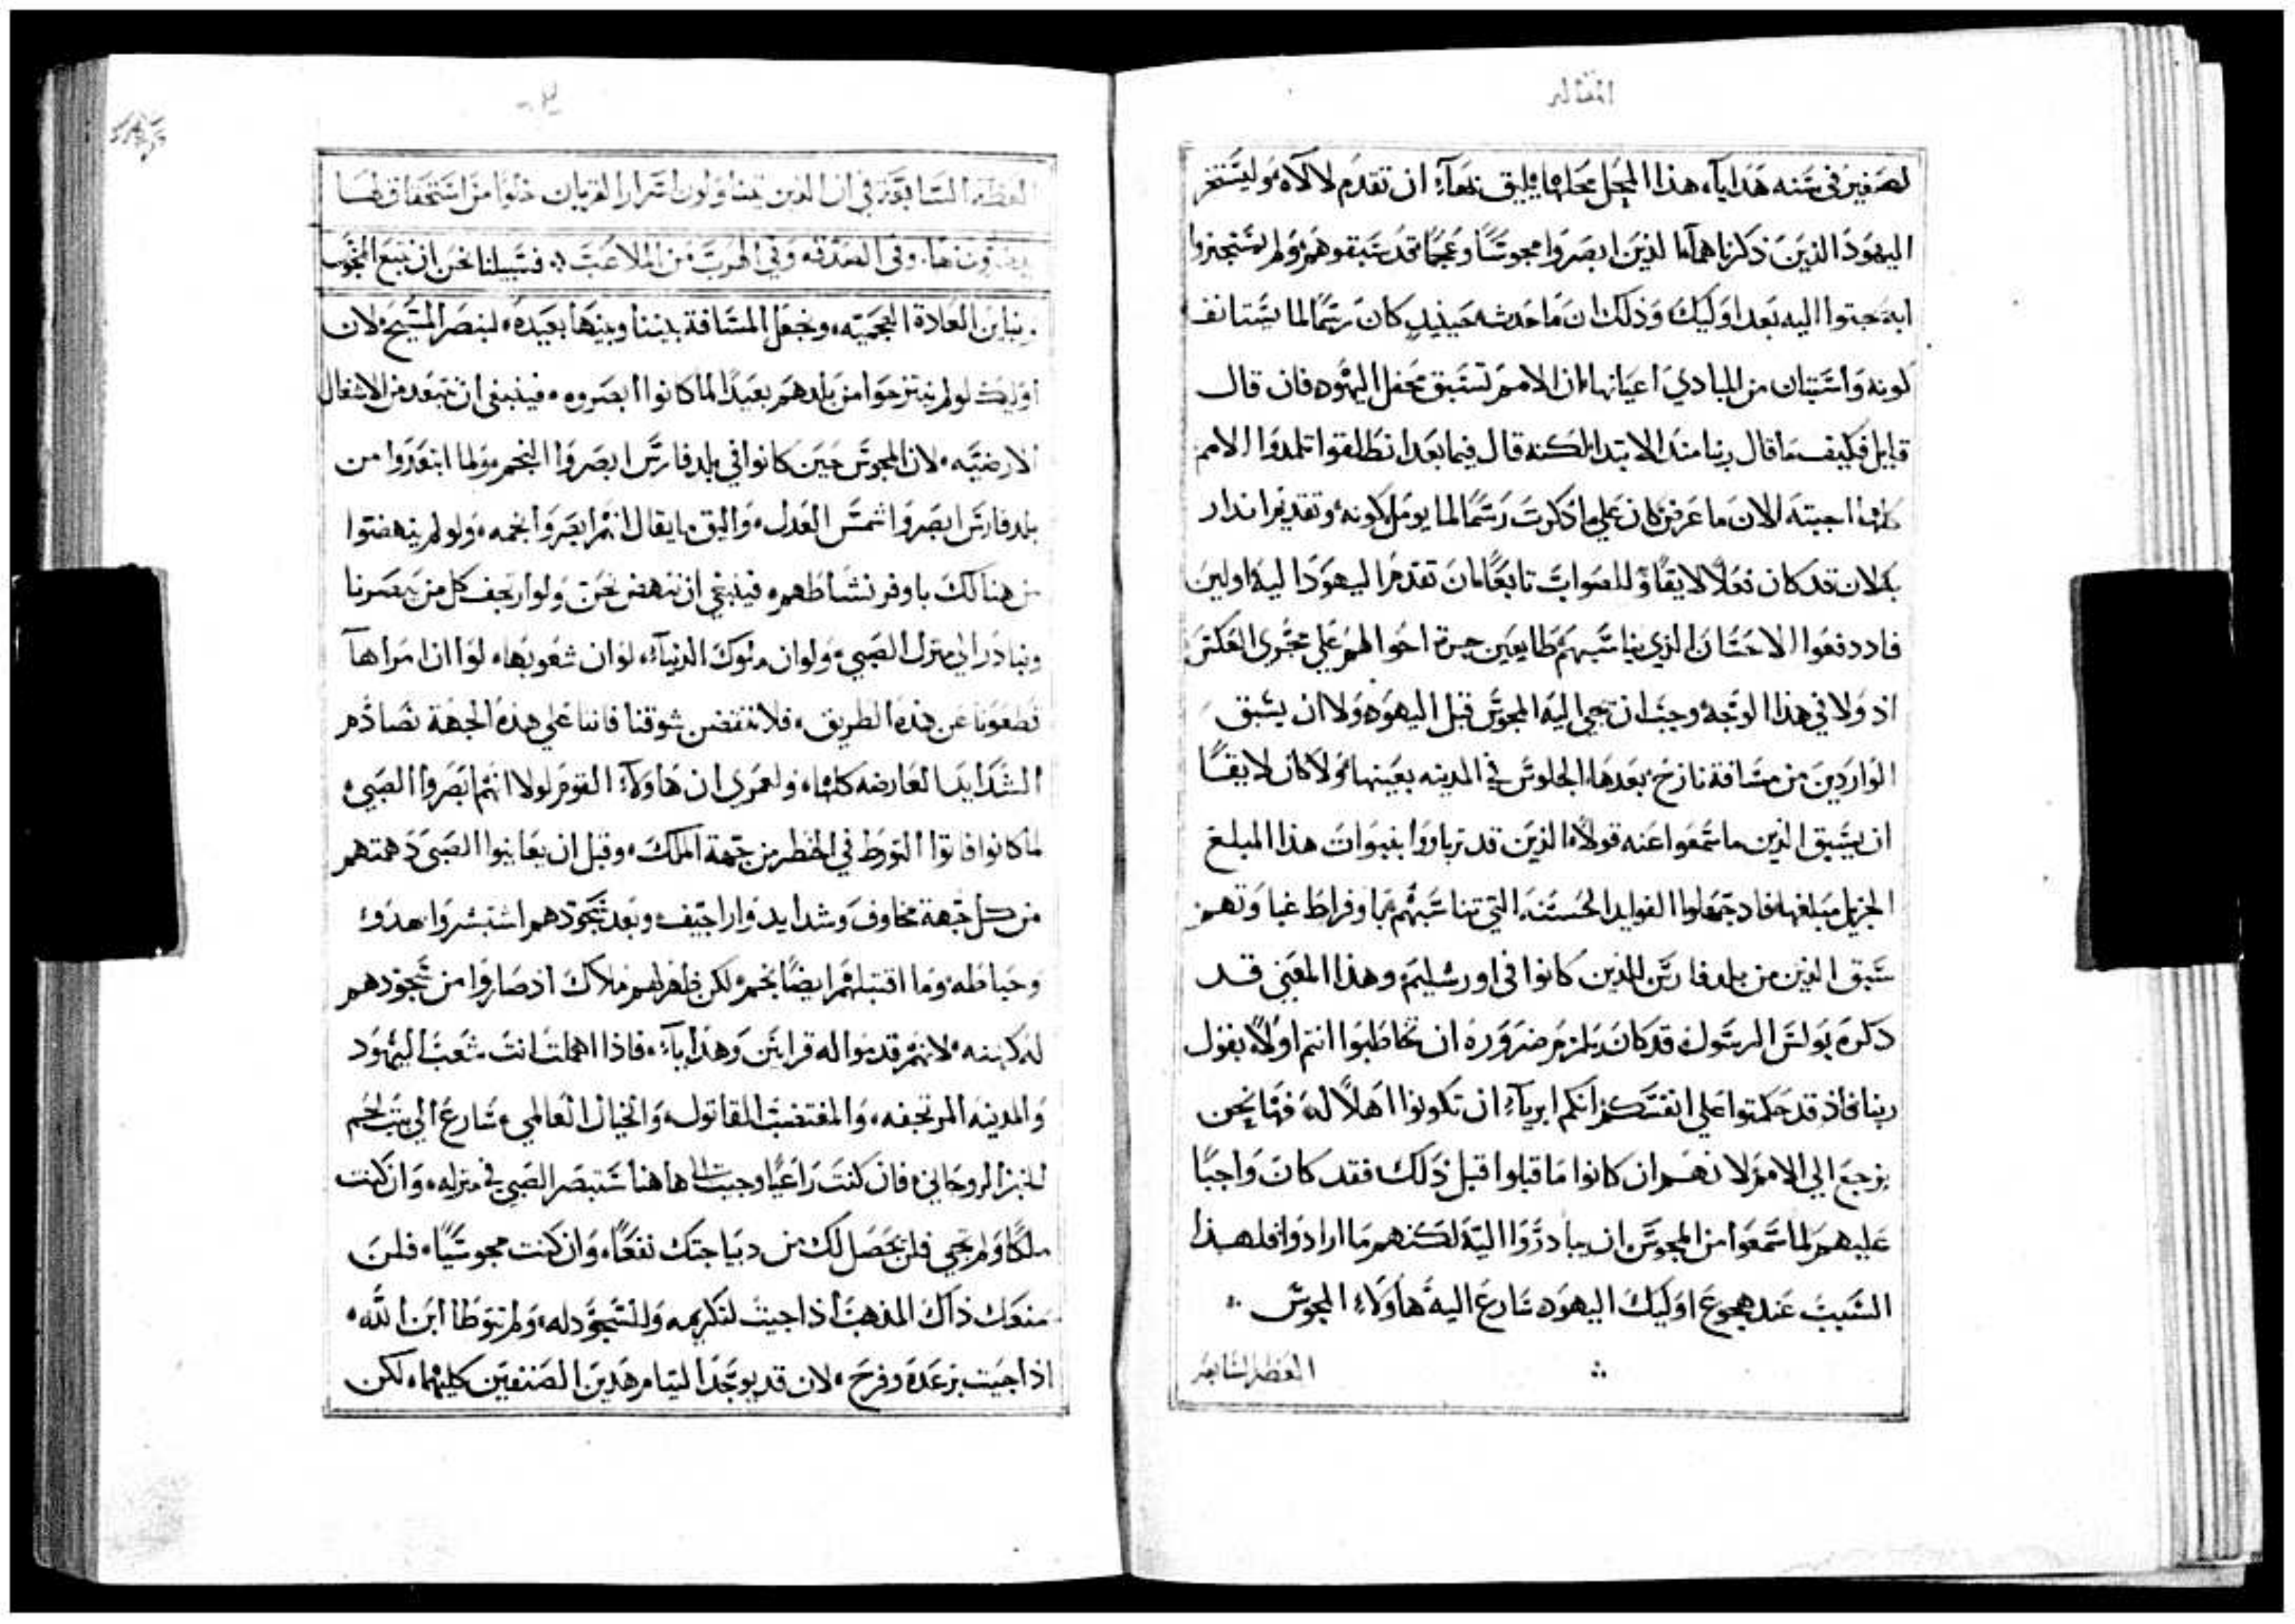 المقاله
هدايآء هذا المحل محلها يليق بهآء ان تقدم لا لاه
اليهود الذين ذكرناهم الذين ابصروا مجوسًا وعجمًا قد سبقوهم ولم يستجيزوا
اليه بعد اوليك وذلك ان ما حدث حينيذٍ كان رسمًا لما يستانف
كونه واستبان من المبادي اعيانها ان الامم تستبق محفل اليهود فان قال
قايل فكيف ما قال ربنا منذ الابتدا لكنه قال فيما بعد انطلقوا تلمدوا الامم
كلها اجبته لان ما عرض كان علي ما ذكرت رسمًا لما يومل كونه وتقديم انذار
بكلان قد كان فعلًا لايقًا وللصواب تابعًا ان تقدم اليهود اليه اولين
فاد دفعوا الاحسان الذي يناسبهم طايعين جرة احوالهم علي مجرى العكس
اذ ولا في هذا الوجه وجب ان تجي اليه المجوس قبل اليهود ولا ان يسبق
الواردين من مسافة نازح بعدها الجلوس في المدينه بعينها ولا كان لايقًا
ان يسبق الذين ما سمعوا عنه قولًا الذين قد تربا ووا بنبوات هذا المبلغ
الجزيل مبلغها فاد جهلوا الفوايد الحسنه التي تناسبهم بافراط غباوتهم
سبق الذين من بلد فارس للذين كانوا في اورشليم وهذا المعني قد
ذكره بولس الرسول قد كان يلزم ضروره ان تخاطبوا انتم اولًا بقول
ربنا فاذ قد حكمتوا علي انفسكم انكم ابريآء ان تكونوا اهلًا له فها نحن
نرجع الي الامم لانهم ان كانوا ما قبلوا قبل ذلك فقد كان واجبًا
عليهم لما سمعوا من المجوس ان يبادروا اليه لكنهم ما ارادوا فلهذا
السبب عند هجوع اوليك اليهود سارع اليه هاولاء المجوس
العظه السابعه
العظه السابعه في ان الذين يتناولون اسرار القربان خلوًا من استحقاق لها
وفي الصدقه وفي الهرب من الملاعب فسبيلنا نحن ان نتبع المجوس
ونباين العادة العجميه ونجعل المسافة بيننا وبينها بعيده لنبصر المسيح لان
اوليك لو لم ينتزحوا من بلدهم بعيدًا لما كانوا ابصروه فينبغي ان نبتعد من الاشغال
الارضيه لان المجوس حين كانوا في بلد فارس ابصروا النجم ولما ابتعدوا من
بلد فارس ابصروا شمس العدل واليق ما يقال انهم ابصروا نجمه ولو لم ينهضوا
من هنالك باوفر نشاطهم فينبغي ان ننهض نحن ولو ارتجف كل من يبصرنا
ونبادر الي منزل الصبي ولو ان ملوك الدنيآء لو ان شعوبها لو ان امراها
قطعونا عن هذه الطريق فلا ننقضن شوقنا فاننا علي هذه الجهة نصادم
الشدايد العارضه كلها ولعمري ان هاولآء القوم لولا انهم ابصروا الصبي
لما كانوا فاتوا التورط في الخطر من جهة الملك وقبل ان يعاينوا الصبي دهمتهم
من كل جهة مخاوف وشدايد واراجيف وبعد سجودهم استبشروا بهدو
وحياطه وما اقتبلهم ايضًا نجم لكن ظهر لهم ملاك اذ صاروا من سجودهم
له كهنه لانهم قدموا له قرابين وهدايآء فاذا اهملت انت شعب اليهود
والمدينه المرتجفه والمغتصب القاتول والخيال العالمي سارع الي بيت لحم
للخبز الروحاني فان كنت راعيًا وجيت الا هاهنا ستبصر الصبي في منزله وان كنت
ملكًا ولم تجي فلن يحصل لك من ديباجتك نفعًا وان كنت مجوسيًا فلن
يمنعك ذاك المذهب اذا جيت لتكريمه وللسجود له ولم تتوطا ابن الله
اذا جيت برعدة وفرح لان قد يوجد اليتام هدين الصنفين كليهما لكن